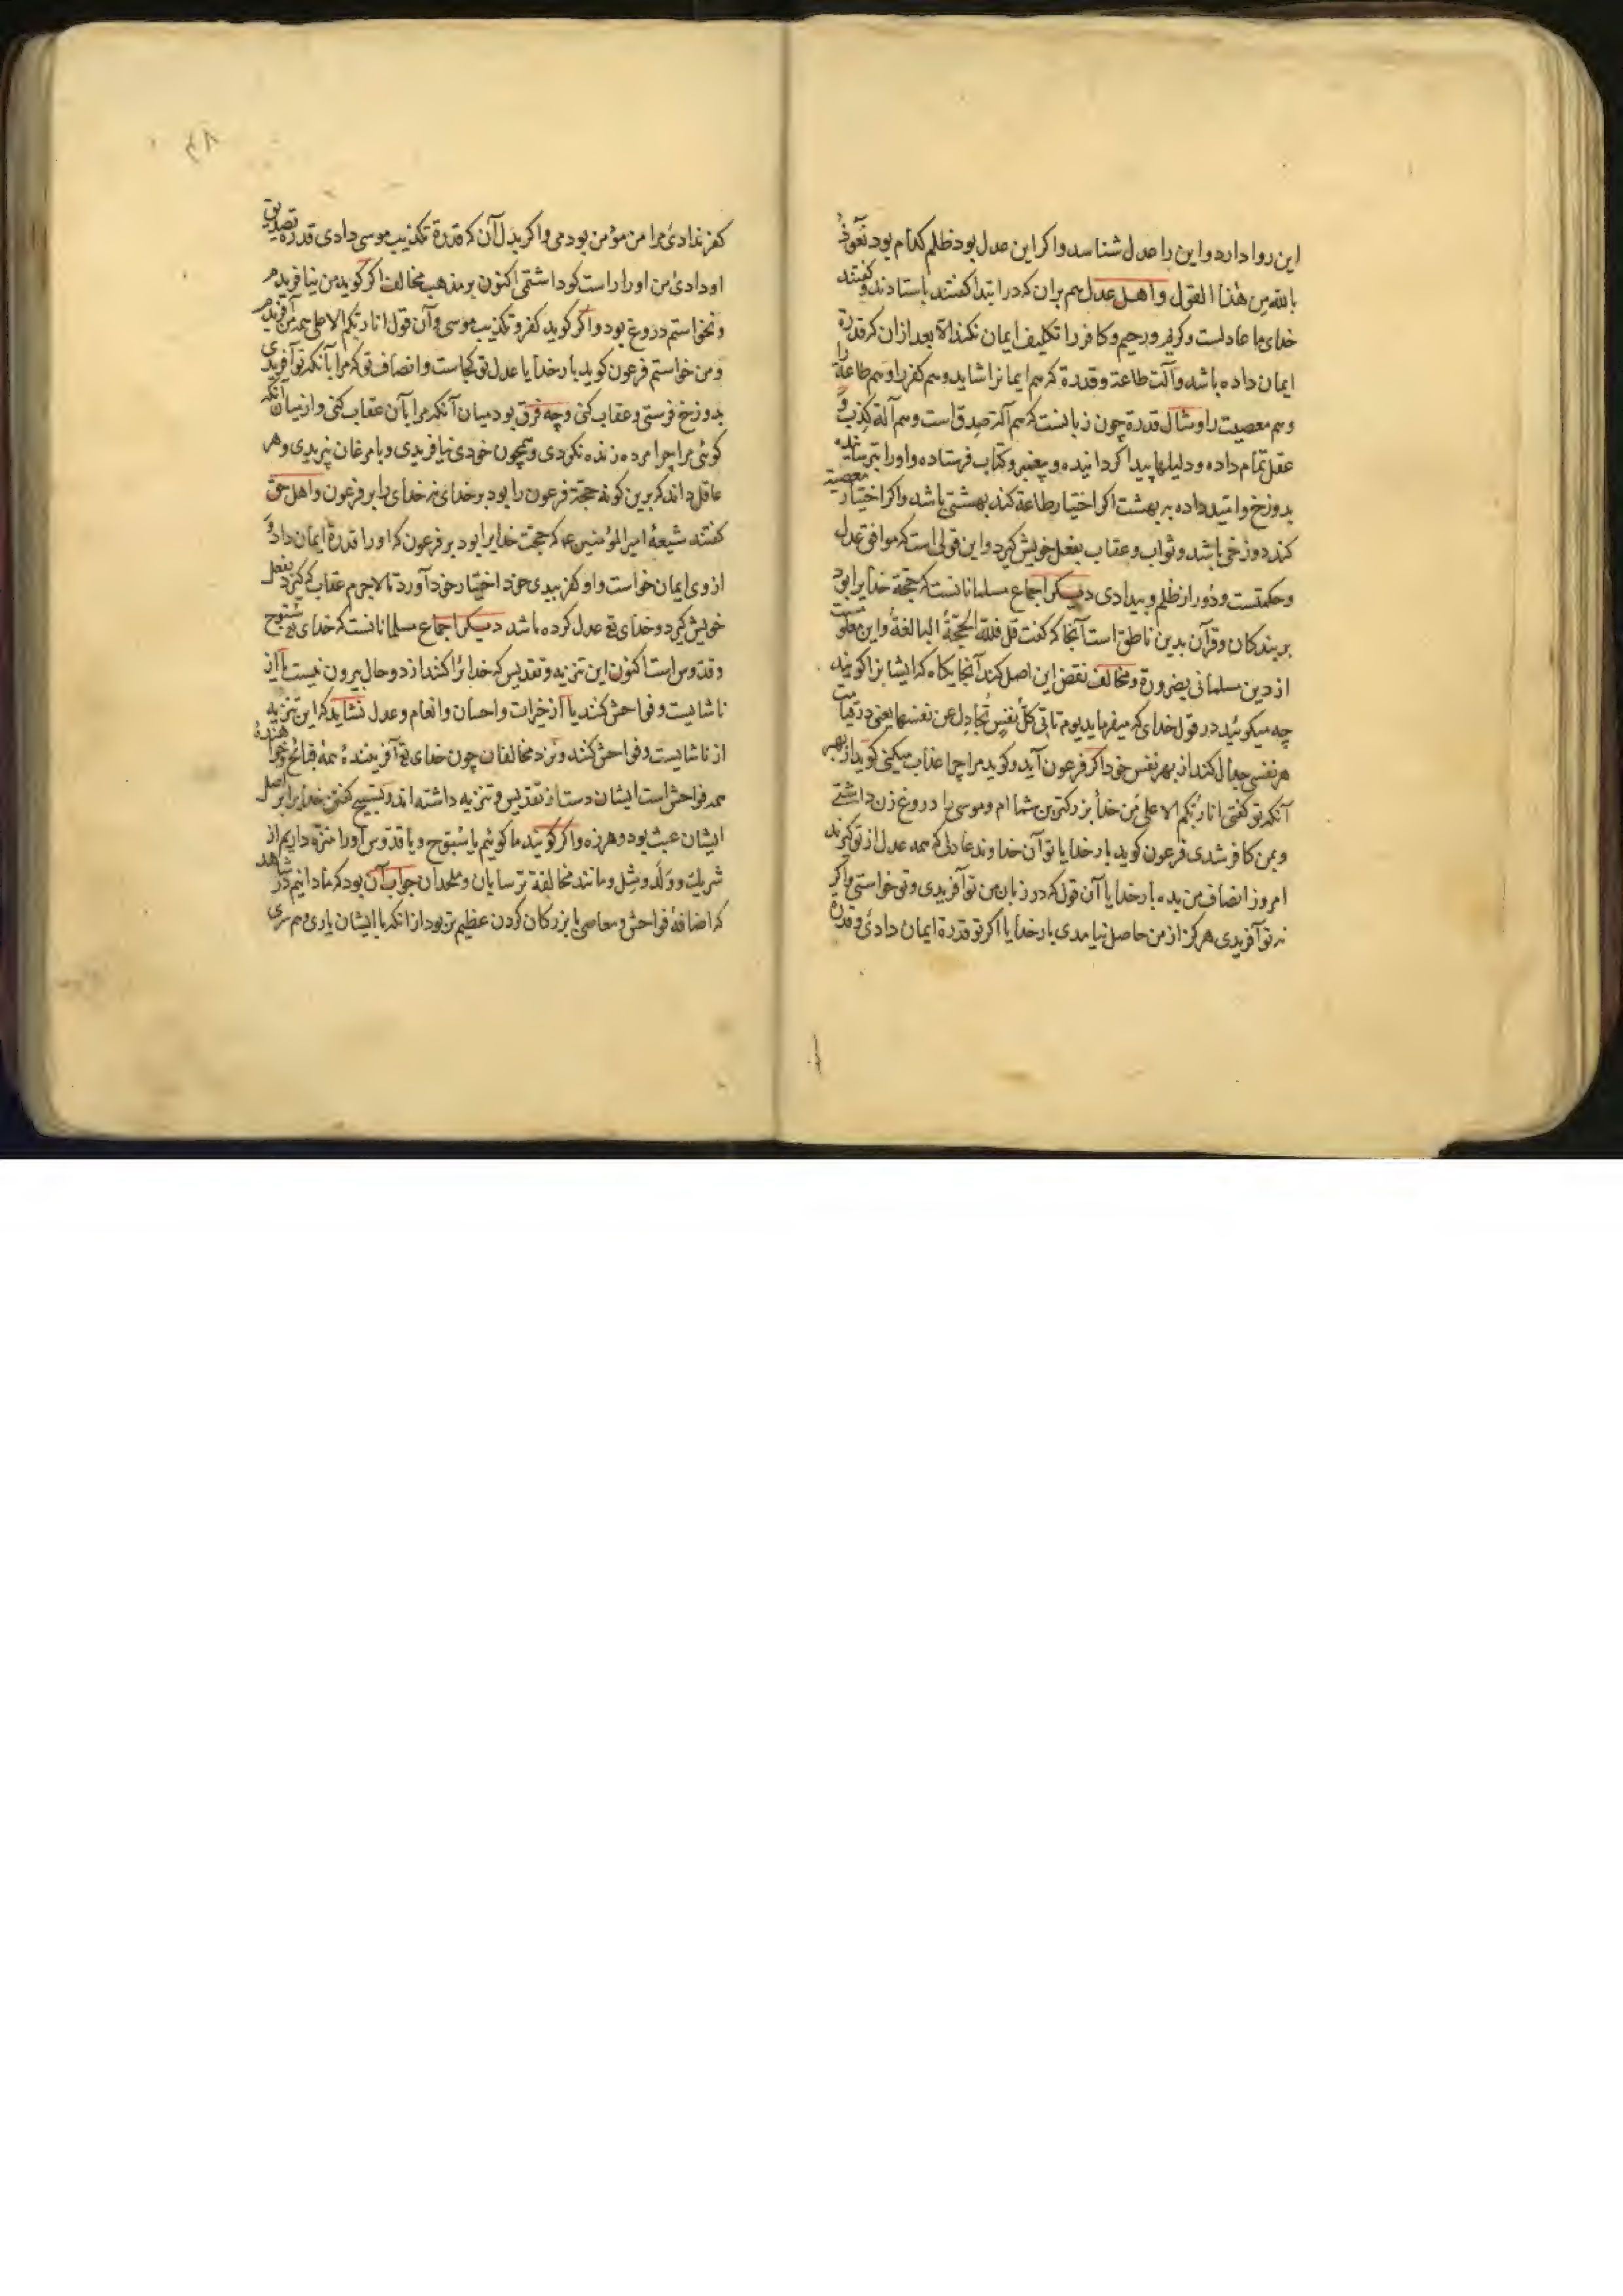 این روا دارد و این را عدل شناسد و اکر این عدل بود ظلم کدام بود نعوذ
بالله من هذا القول و اهل عدل هم بران که در ابتدا کفتند باستادند و کفتند
خدای ما عادلست و کریم و رحیم و کافر را تکلیف ایمان نکند الا بعد از ان که قدرة
ایمان داده باشد و آلت طاعة و قدرة که هم ایمانرا شاید و هم کفر را و هم طاعة را
و هم معصیت را و مثال قدرة چون زبانست که هم آلة صدق است و هم آلة کذب و
عقل تمام داده و دلیلها پیدا کردانیده و پیغمبر و کتاب فرستاده و او را بترسانیده
بدوزخ و امید داده به بهشت اکر اختیار طاعة کند بهشتی باشد و اکر اختیار معصیة
کند دوزخی باشد و ثواب و عقاب بفعل خویش کیرد و این قولی است که موافق عدل
و حکمتست و دور از ظلم و بیدادی دیکر اجماع مسلمانانست که حجة خدایرا بود
بر بندکان و قرآن بدین ناطق است آنجا که کفت قل فلله الحجة البالغة و این معلومست
از دین مسلمانی بضرورة و مخالف نقض این اصل کند آنجایکاه که ایشانرا کویند
چه میکوئید در قول خدای که میفرماید یوم تاتی کل نفس تجادل عن نفسها یعنی در قیامت
هر نفسی جدال کند از بهر نفس خود اکر فرعون آید و کوید مرا چرا عذاب میکنی کوید از بهر
آنکه تو کفتی انا ربکم الاعلی من خدا بزرکترین شما ام و موسی را دروغ زن داشتی
و بمن کافر شدی فرعون کوید بار خدایا تو آن خداوند عادلی که همه عدل از تو کیرند
امروز انصاف من بده بار خدایا آن قول که در زبان من تو آفریدی و تو خواستی و اکر
نه تو آفریدی هرکز از من حاصل نیامدی بار خدایا اکر تو قدرة ایمان دادئ و قدرة
کفر ندادئ مرا من مؤمن بودمی و اکر بدل آن که قدرة تکذیب موسی دادی قدرة تصدیق
او دادئ من او را راست کو داشتمی اکنون بر مذهب مخالف اکر کوید من نیافریدم
و نخواستم دروغ بود و اکر کوید کفر و تکذیب موسی و آن قول انا ربکم الاعلی همه من آفریدم
و من خواستم فرعون کوید بار خدایا عدل تو کجاست و انصاف تو که مرا بآنکه تو آفریدی
بدوزخ فرستی و عقاب کنی و چه فرق بود میان آنکه مرا بآن عقاب کنی و از میان آنکه
کوئی مرا چرا مرده زنده نکردی و همچون خودی نیافریدی و با مرغان نپریدی و هر
عاقل داند که برین کونه حجة فرعون را بود بر خدای نه خدای را بر فرعون و اهل حق
کفتند شیعهٔ امیر المؤمنین ع که حجت خدایرا بود بر فرعون که او را قدرة ایمان داد و
از وی ایمان خواست و او کفر ببدی خود اختیار خود آورد تا لاجرم عقاب که کیرد بفعل
خویش کیرد و خدای تع عدل کرده باشد دیکر اجماع مسلمانانست که خدای تع سبوح
و قدوس است اکنون این تنزیه و تقدیس که خدائرا کنند از دو حال بیرون نیست یا از
ناشایست و فواحش کنند یا از خیرات و احسان و انعام و عدل نشاید که این تنزیه
از ناشایست و فواحش کنند و نزد مخالفان چون خدای تع آفرینندهٔ همهٔ قبائح و خواهندهٔ
همه فواحش است ایشان دست از تقدیس و تنزیه داشته اند و تسبیح کفتن خدایرا بر اصل
ایشان عبث بود و هرزه و اکر کویند ما کوئیم یا سبوح و یا قدوس او را منزه داریم از
شریک و ولد و مثل و مانند مخالفة ترسایان و ملحدان جواب آن بود که ما دانیم در شاهد
که اضافهٔ فواحش و معاصی با بزرکان کردن عظیم تر بود از آنکه با ایشان یاری و همسری